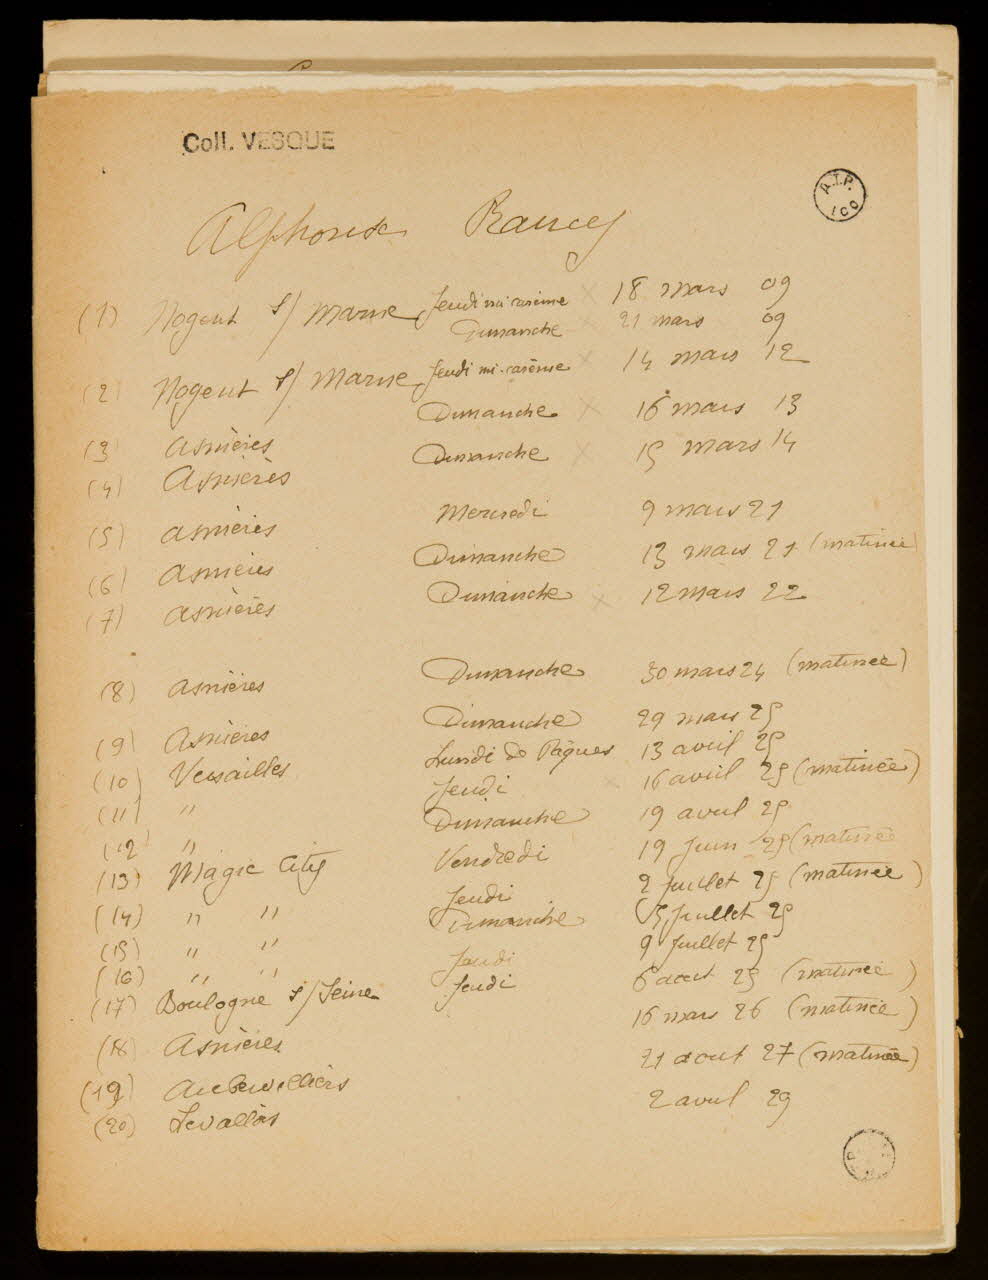 Coll. VESQUE
A.T.P. ICO
Alphonse Rancy
(1) Nogent s/ Marne Jeudi mi-carème × 18 mars 09
Dimanche × 21 mars 09
(2) Nogent s/ Marne Jeudi mi-carème × 14 mars 12
(3) Asnières Dimanche × 16 mars 13
(4) Asnières Dimanche × 15 mars 14
(5) Asnières Mercredi 9 mars 21
(6) Asnières Dimanche 13 mars 21 (matinée
(7) Asnières Dimanche × 12 mars 22
(8) Asnières Dimanche 30 mars 24 (matinée)
(9) Asnières Dimanche 29 mars 25
(10) Versailles Lundi de Pâques 13 avril 25
(11) " Jeudi × 16 avril 25 (matinée)
(12) " Dimanche 19 avril 25
(13) Magic City Vendredi 19 Juin 25 (matinée
(14) " " Jeudi 2 Juillet 25 (matinée)
(15) " " Dimanche 5 Juillet 25
(16) " " Jeudi 9 Juillet 25
(17) Boulogne s/ Seine Jeudi 6 aout 25 (matinée)
(18) Asnières 16 mars 26 (matinée)
(19) Aubervilliers 21 aout 27 (matinée)
(20) Levallois 2 avril 29